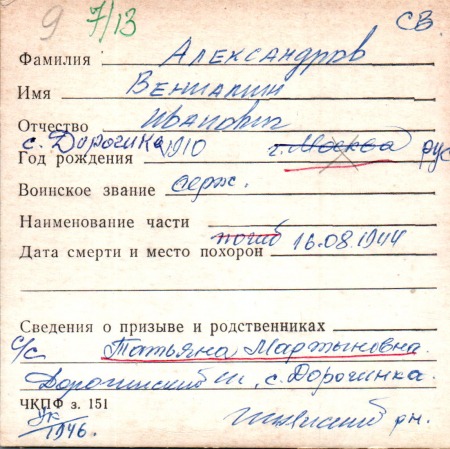 9 7/13 СВ.
Фамилия Александров
Имя Вениамин
Отчество Иванович
с. Дорогинка
Год рождения 1910 г. Москва рус
Воинское звание серж.
Наименование части
погиб 16.08.1944
Дата смерти и место похорон
Сведения о призыве и родственниках
с/с Татьяна Мартыновна
Дорогинский с/с, с. Дорогинка.
ЧКПФ з. 151
УК
1946. рн.